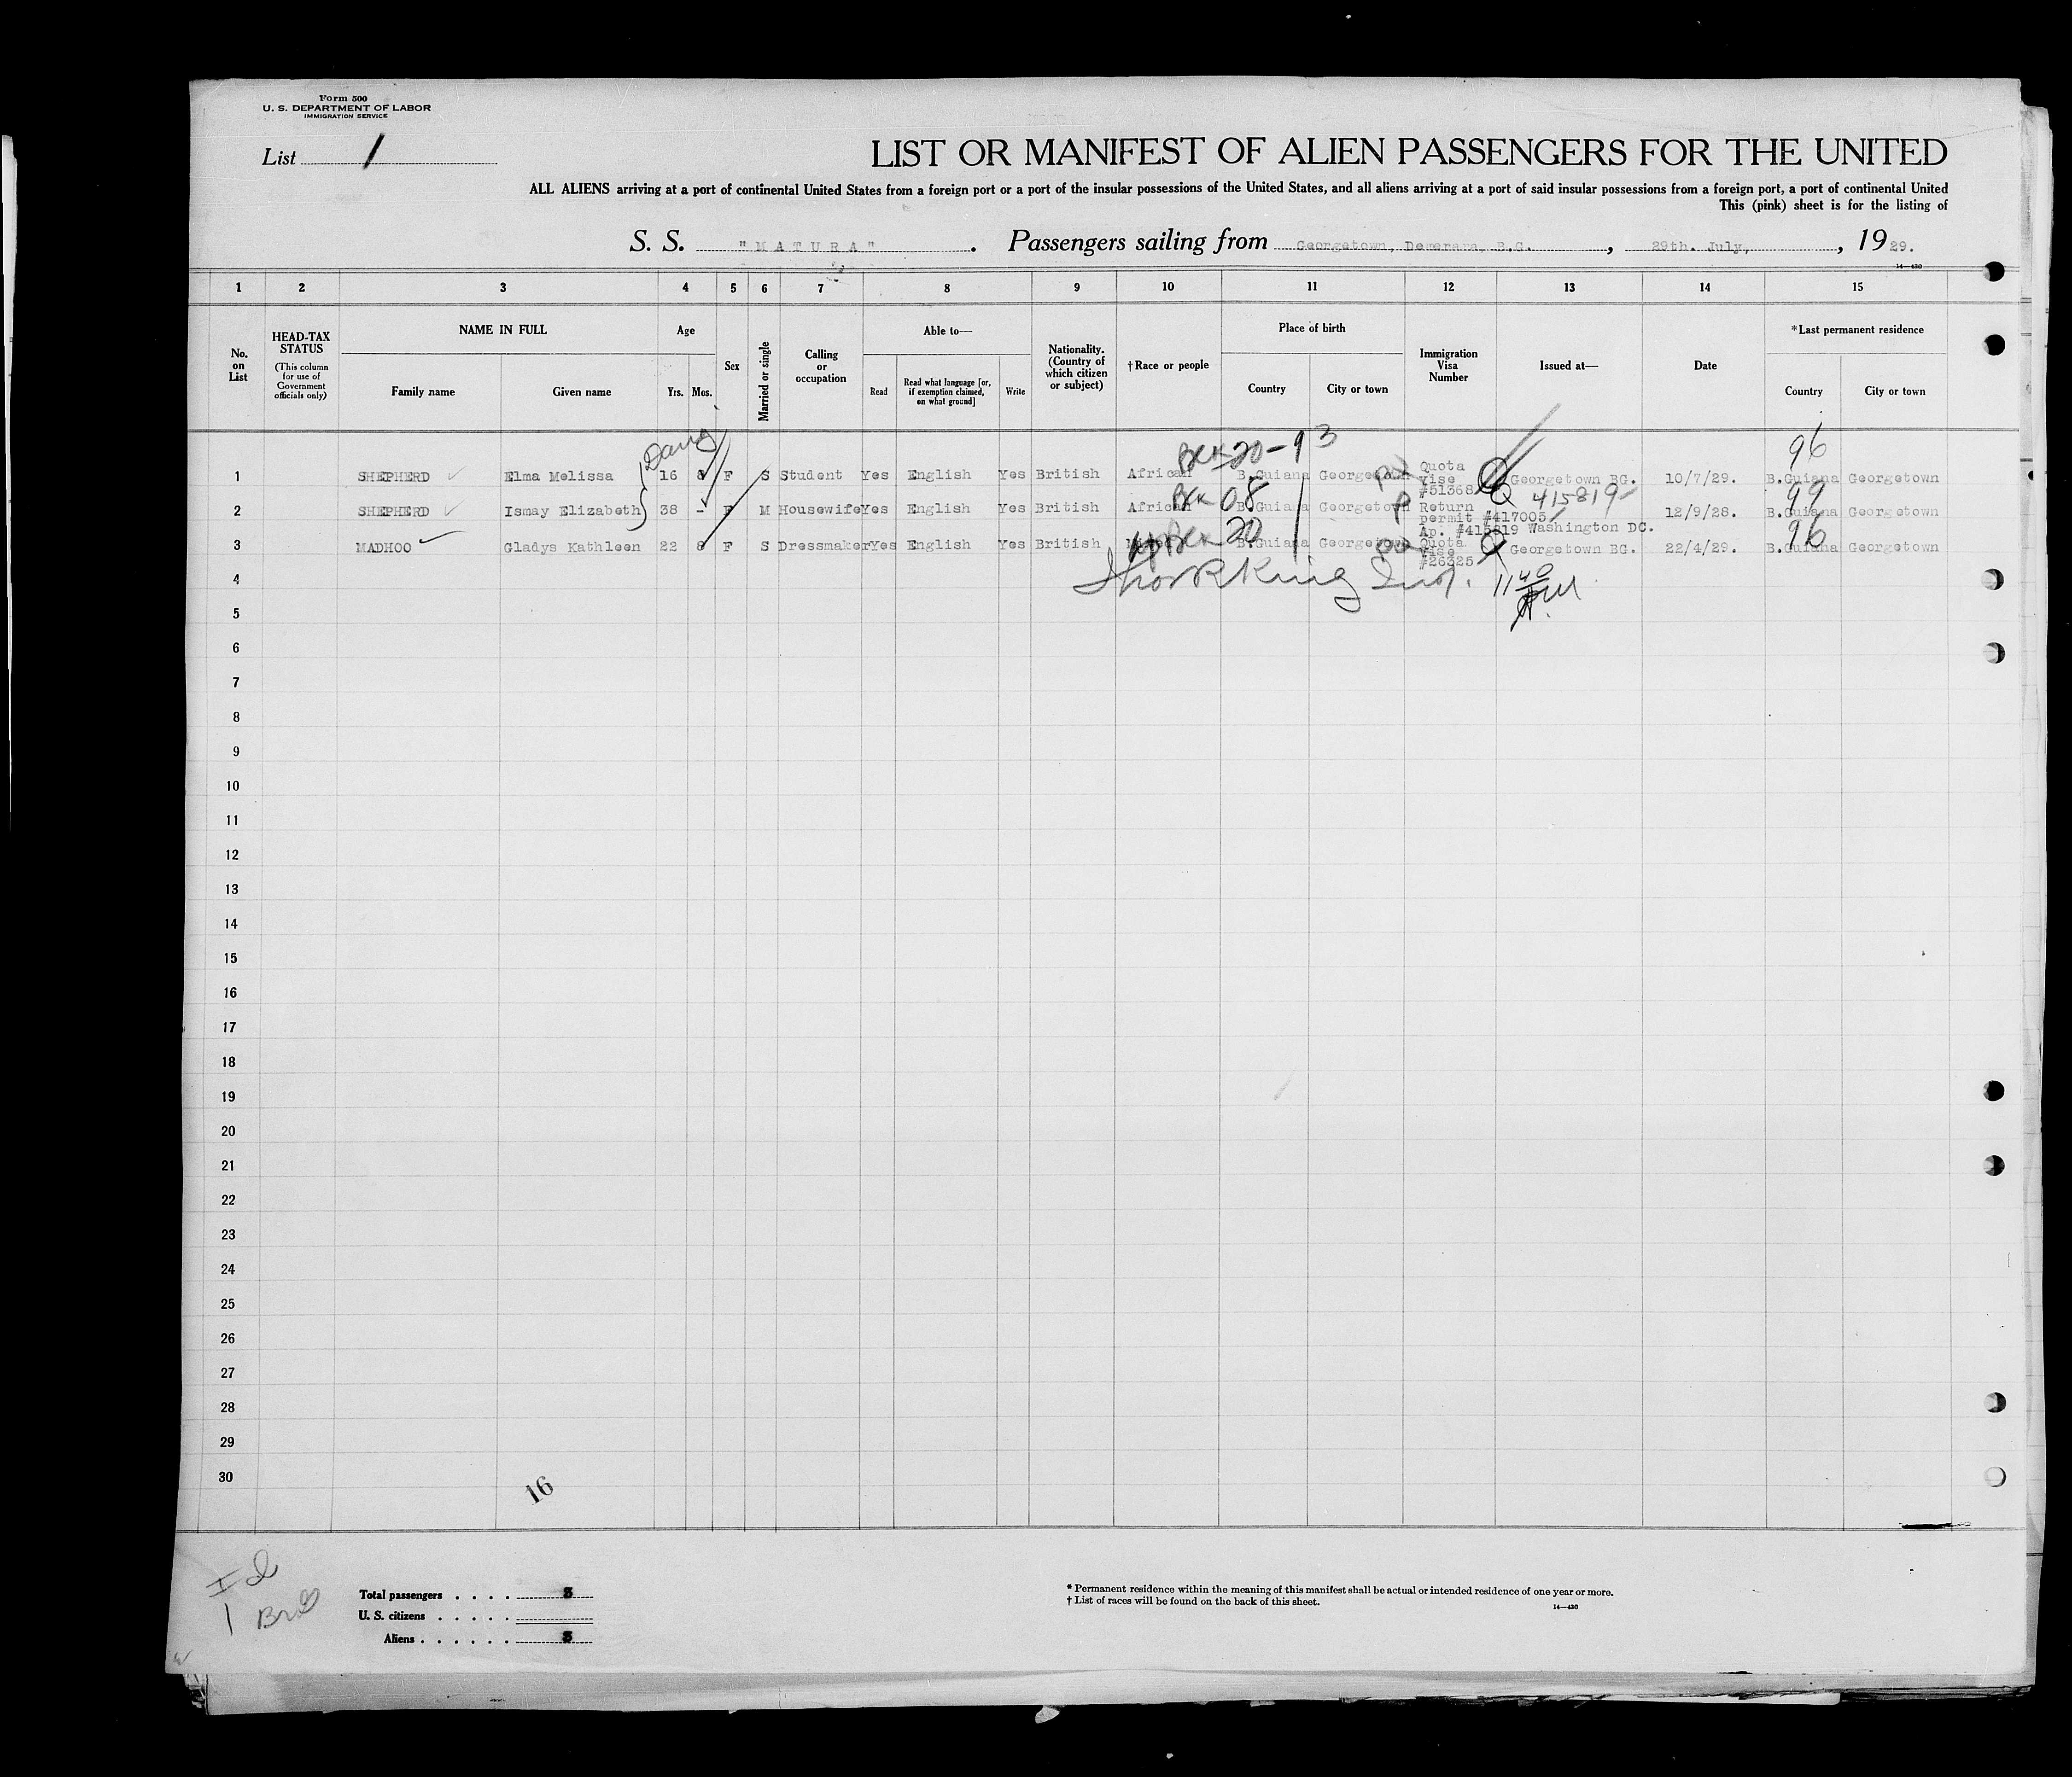 Form 500
U. S. DEPARTMENT OF LABOR
IMMIGRATION SERVICE
List 1
LIST OR MANIFEST OF ALIEN PASSENGERS FOR THE UNITED
ALL ALIENS arriving at a port of continental United States from a foreign port or a port of the insular possessions of the United States, and all aliens arriving at a port of said insular possessions from a foreign port, a port of continental United
This (pink) sheet is for the listing of
S. S. "MATURA". Passengers sailing from Georgetown, Demerara, B.G., 29th. July, , 1929.
14—430
1 2 3 4 5 6 7 8 9 10 11 12 13 14 15
No. on List
HEAD-TAX STATUS
(This column for use of Government officials only)
NAME IN FULL
Family name Given name
Age
Yrs. Mos.
Sex
Married or single
Calling or occupation
Able to—
Read Read what language [or, if exemption claimed, on what ground] Write
Nationality. (Country of which citizen or subject)
† Race or people
Place of birth
Country City or town
Immigration Visa Number
Issued at—
Date
*Last permanent residence
Country City or town
20-93
96
1 SHEPHERD Elma Melissa 16 F S Student Yes English Yes British African B.Guiana Georgetown Quota Vise #51368 Georgetown BG. 10/7/29. B.Guiana Georgetown
08 415819 99
2 SHEPHERD Ismay Elizabeth 38 - F M Housewife Yes English Yes British African B.Guiana Georgetown Return permit #417005 Ap. #415819 Washington DC. 12/9/28. B.Guiana Georgetown
20 96
3 MADHOO Gladys Kathleen 22 8 F S Dressmaker Yes English Yes British B.Guiana Georgetown Quota Vise #26325 Georgetown BG. 22/4/29. B.Guiana Georgetown
4
5
6
7
8
9
10
11
12
13
14
15
16
17
18
19
20
21
22
23
24
25
26
27
28
29
30
16
Total passengers . . . . 3
U. S. citizens . . . . .
Aliens . . . . . . 3
* Permanent residence within the meaning of this manifest shall be actual or intended residence of one year or more.
† List of races will be found on the back of this sheet.
14—430